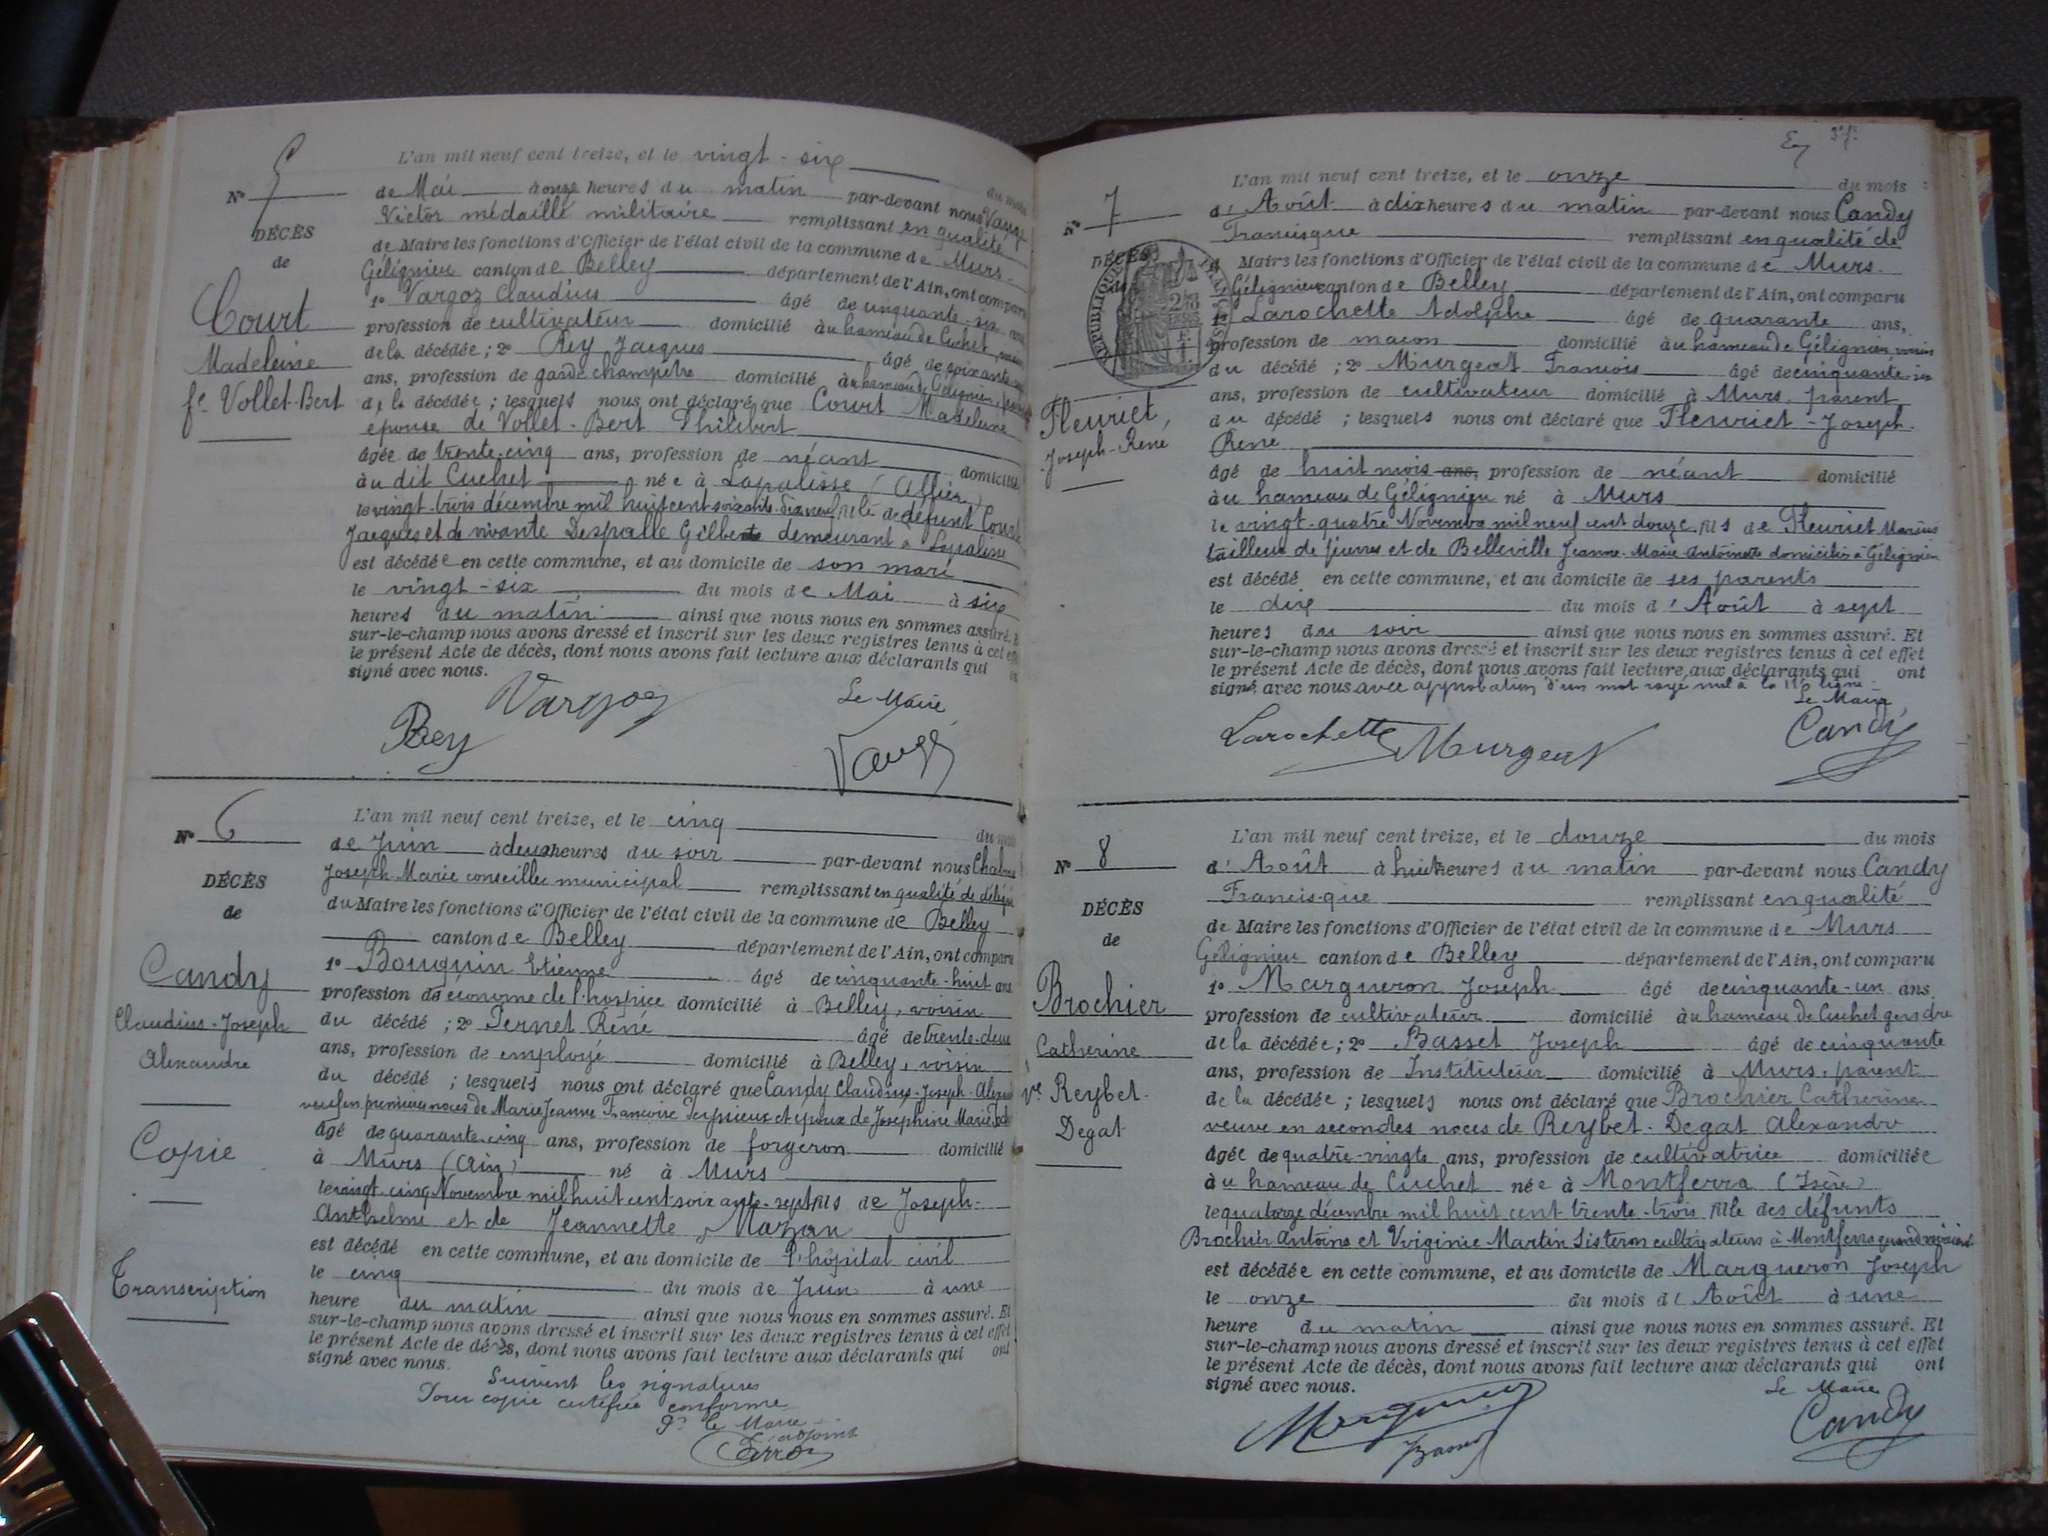 L'an mil neuf cent treize, et le vingt-six
du mois
Nº 5
de Mai à onze heures du matin par-devant nous Vaugé
Victor médaillé militaire remplissant en qualité
DÉCÈS
de Maire les fonctions d'Officier de l'état civil de la commune de Murs-
de
Gélignieu canton de Belley département de l'Ain, ont comparu
1º Vargoz Claudius âgé de cinquante-six ans
Court
profession de cultivateur domicilié à u hameau de Cuchet
Madeleine
de la décédée ; 2º Rey Jacques âgé de soixante
ans, profession de garde champêtre domicilié
fe Vollet-Bert
de la décédée ; lesquels nous ont déclaré que Court Madeleine
épouse de Vollet-Bert Philibert
âgée de trente-cinq ans, profession de néant domiciliée
à u dit Cuchet née à Lapalisse (Allier)
le vingt-trois décembre mil huit cent soixante-dix-neuf fille de défunt Court
Jacques et de vivante Desphalle Gilberte demeurant à Lapalisse
est décédée en cette commune, et au domicile de son mari
le vingt-six du mois de Mai à six
heures du matin ainsi que nous nous en sommes assuré. Et
sur-le-champ nous avons dressé et inscrit sur les deux registres tenus à cet effet
le présent Acte de décès, dont nous avons fait lecture aux déclarants qui ont
signé avec nous.
Le Maire
Vargoz
Rey
Vaugé
L'an mil neuf cent treize, et le cinq du mois
Nº 6
de Juin à deux heures du soir par-devant nous
Joseph Marie conseiller municipal remplissant en qualité de délégué
DÉCÈS
du Maire les fonctions d'Officier de l'état civil de la commune de Belley
de
canton de Belley département de l'Ain, ont comparu
1º Bouquin Etienne âgé de cinquante-huit ans
Candy
profession de économe de l'hospice domicilié à Belley, voisin
Claudius-Joseph
du décédé ; 2º Pernet René âgé de trente-deux
Alexandre
ans, profession de employé domicilié à Belley, voisin
du décédé ; lesquels nous ont déclaré que Candy Claudius-Joseph-Alexandre
veuf en premières noces de Marie Jeanne Françoise Peysieux et époux de Joséphine Marie
Copie
âgé de quarante-cinq ans, profession de forgeron domicilié
à Murs (Ain) né à Murs
le vingt-cinq Novembre mil huit cent soixante-sept fils de Joseph-
Anthelme et de Jeannette Mazan
est décédé en cette commune, et au domicile de l'hôpital civil
Transcription
le cinq du mois de Juin à une
heure du matin ainsi que nous nous en sommes assuré. Et
sur-le-champ nous avons dressé et inscrit sur les deux registres tenus à cet effet
le présent Acte de décès, dont nous avons fait lecture aux déclarants qui ont
signé avec nous.
Suivent les signatures
Pour copie certifiée conforme
Pr le Maire
adjoint
3e f.
L'an mil neuf cent treize, et le onze du mois
Nº 7
d'Août à dix heures du matin par-devant nous Candy
Francisque remplissant en qualité de
DÉCÈS
Maire les fonctions d'Officier de l'état civil de la commune de Murs-
RÉPUBLIQUE FRANÇAISE
Gélignieu canton de Belley département de l'Ain, ont comparu
1º Larochette Adolphe âgé de quarante ans,
profession de maçon domicilié à u hameau de Gélignieu, voisin
du décédé ; 2º Murgeat François âgé de cinquante-six
ans, profession de cultivateur domicilié à Murs, parent
Fleuriet,
du décédé ; lesquels nous ont déclaré que Fleuriet-Joseph-
Joseph-René
René
âgé de huit mois ans, profession de néant domicilié
à u hameau de Gélignieu né à Murs
le vingt-quatre Novembre mil neuf cent douze, fils de Fleuriet Marius
tailleur de pierres et de Belleville Jeanne-Marie-Antoinette domiciliés à Gélignieu
est décédé en cette commune, et au domicile de ses parents
le dix du mois d'Août à sept
heures du soir ainsi que nous nous en sommes assuré. Et
sur-le-champ nous avons dressé et inscrit sur les deux registres tenus à cet effet
le présent Acte de décès, dont nous avons fait lecture aux déclarants qui ont
signé avec nous avec approbation d'un mot rayé nul à la 11e ligne.
Le Maire
Larochette Murgeat Candy
L'an mil neuf cent treize, et le douze du mois
Nº 8
d'Août à huit heures du matin par-devant nous Candy
Francisque remplissant en qualité
DÉCÈS
de Maire les fonctions d'Officier de l'état civil de la commune de Murs
de
Gélignieu canton de Belley département de l'Ain, ont comparu
1º Margueron Joseph âgé de cinquante-un ans
Brochier
profession de cultivateur domicilié à u hameau de Cuchet gendre
Catherine
de la décédée ; 2º Basset Joseph âgé de cinquante
ans, profession de Instituteur domicilié à Murs, parent
ve Reybet-
de la décédée ; lesquels nous ont déclaré que Brochier Catherine
Degat
veuve en secondes noces de Reybet-Degat Alexandre
âgée de quatre-vingts ans, profession de cultivatrice domiciliée
à u hameau de Cuchet née à Montferra (Isère)
le quatorze décembre mil huit cent trente-trois fille des défunts
Brochier Antoine et Virginie Martin Sisteron cultivateurs à Montferra quand vivaient
est décédée en cette commune, et au domicile de Margueron Joseph
le onze du mois d'Août à une
heure du matin ainsi que nous nous en sommes assuré. Et
sur-le-champ nous avons dressé et inscrit sur les deux registres tenus à cet effet
le présent Acte de décès, dont nous avons fait lecture aux déclarants qui ont
signé avec nous.
Le Maire
Margueron
Basset
Candy